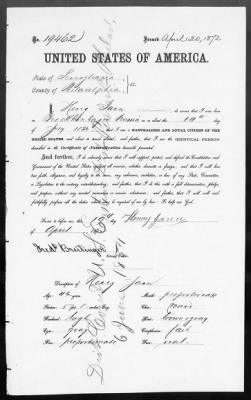 No. 19462
Issued April 20, 1872
UNITED STATES OF AMERICA.
State of Pennsylvania
County of Philadelphia } ss:
I, Henry
, do swear that I was born in
on or about the 19th day
of July 1826; that I am a NATURALIZED AND LOYAL CITIZEN OF THE
UNITED STATES, and about to travel abroad; and further, that I am the IDENTICAL PERSON
described in the Certificate of Naturalization herewith presented.
And further, I do solemnly swear that I will support, protect, and defend the Constitution and
Government of the United States against all enemies, whether domestic or foreign; and that I will bear
true faith, allegiance, and loyalty to the same, any ordinance, resolution, or law of any State, Convention,
or Legislature to the contrary notwithstanding; and further, that I do this with a full determination, pledge,
and purpose, without any mental reservation or evasion whatsoever; and further, that I will well and
faithfully perform all the duties which may be required of me by law: So help me God.
Sworn to before me, this 19th day
of April, 187
Notary Public.
Description of Henry
Age:
Stature: 5 ft
Forehead: high
Eyes: gray
Nose: proportionate
Mouth: proportionate
Chin: round
Hair: brown gray
Complexion: fair
Face: oval
6 June 1871